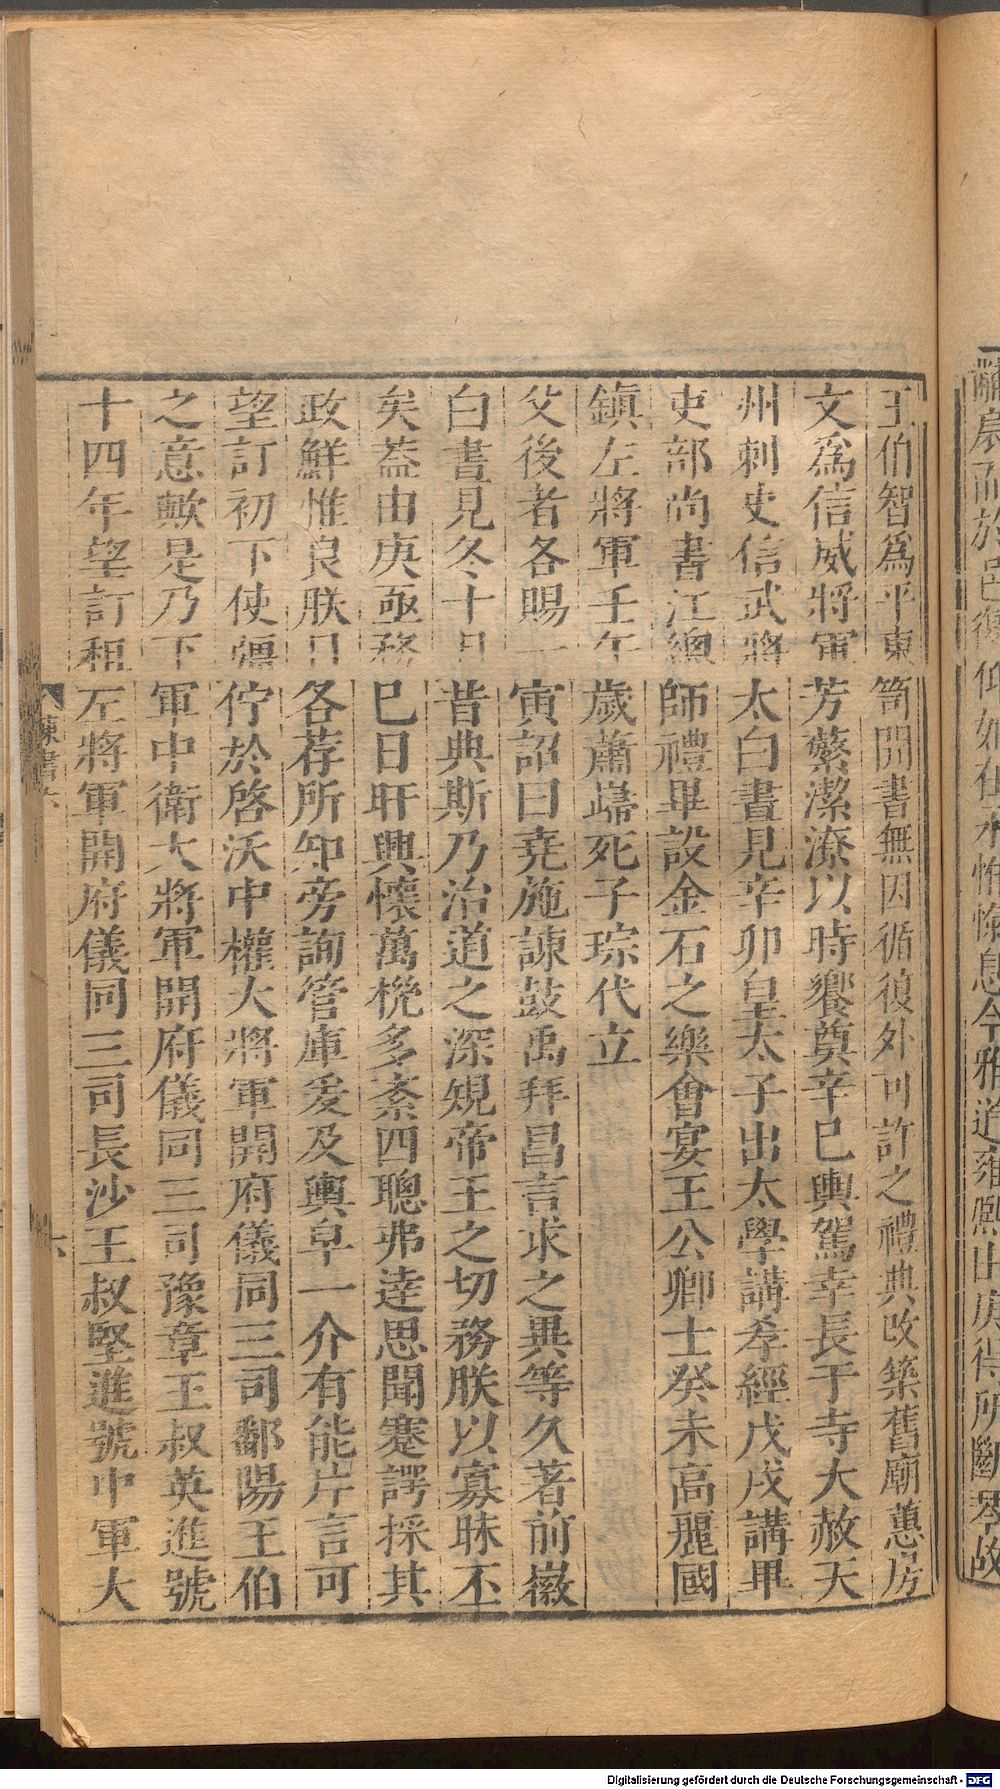 黼扆而於邑復仰如在永惟慨息今雅道雍熙由庚得所斷琴故
王伯智爲平東笥開書無因循復外可許之禮典改築舊廟蕙房
文爲信威將軍芳蘩潔潦以時饗奠辛巳輿駕幸長干寺大赦天
州刺史信武將太白晝見辛卯皇太子出太學講孝經戊戌講畢
吏部尚書江總師禮畢設金石之樂會宴王公卿士癸未高麗國
鎮左將軍壬午歲蕭巋死子琮代立
父後者各賜一寅詔曰堯施諫鼓禹拜昌言求之異等久著前徽
白晝見冬十月昔典斯乃治道之深規帝王之切務朕以寡昧丕
矣蓋由庚亟務巳日旰興懷萬機多紊四聰弗逹思聞蹇諤採其
政鮮惟良朕日各荐所知旁詢管庫爰及輿皁一介有能片言可
望訂初下使彊佇於啓沃中權大將軍開府儀同三司鄱陽王伯
之意歟是乃下軍中衛大將軍開府儀同三司豫章王叔英進號
十四年望訂租左將軍開府儀同三司長沙王叔堅進號中軍大
陳書六
六
Digitalisierung gefördert durch die Deutsche Forschungsgemeinschaft - DFG